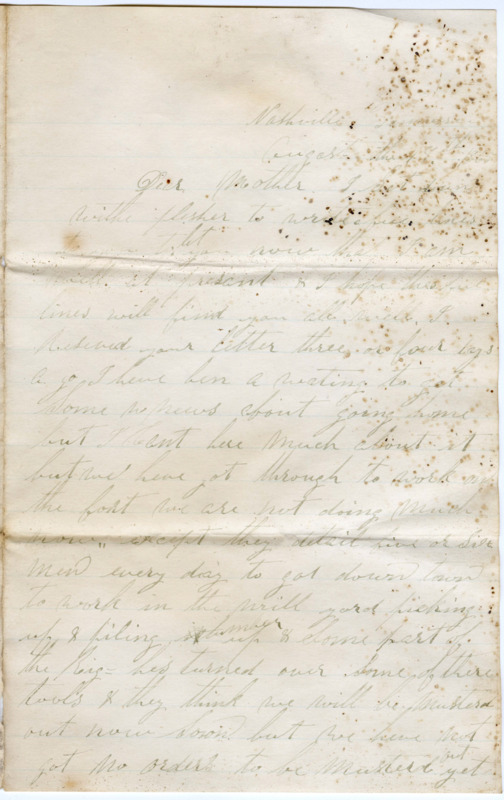 Nashville
August
Der Mother I
withe plesher to write
let you now that I am
well at present & I hope this
lines will find you all well I
reseived your letter three or four days
a go I have ben a wating to get
some nunews about going home
but I cant here much about it
but we have got through to work on
the fort we are not doing much
now,, except they detail five or six
men every day to got down town
to work in the mill yard picking
up & piling up lumber & some part of
the Reg= hes turned over some of there
tools & they think we will be musterd
out now soon but we have not
got no orders to be musterd out yet